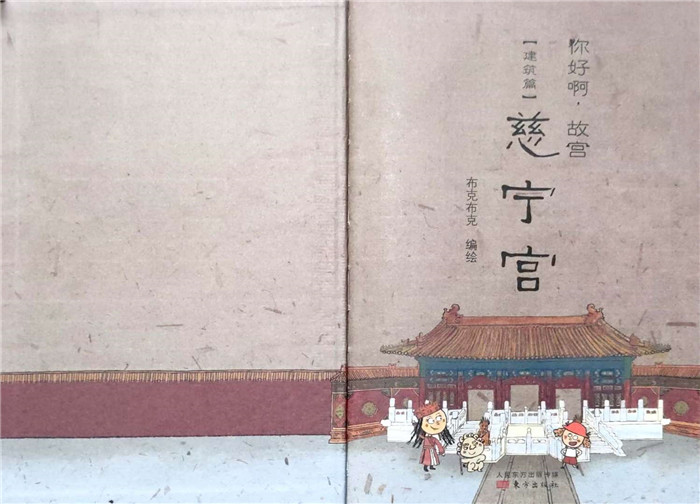 你好啊，故宫
【建筑篇】
慈宁宫
布克布克 编绘
人民东方出版传媒
东方出版社